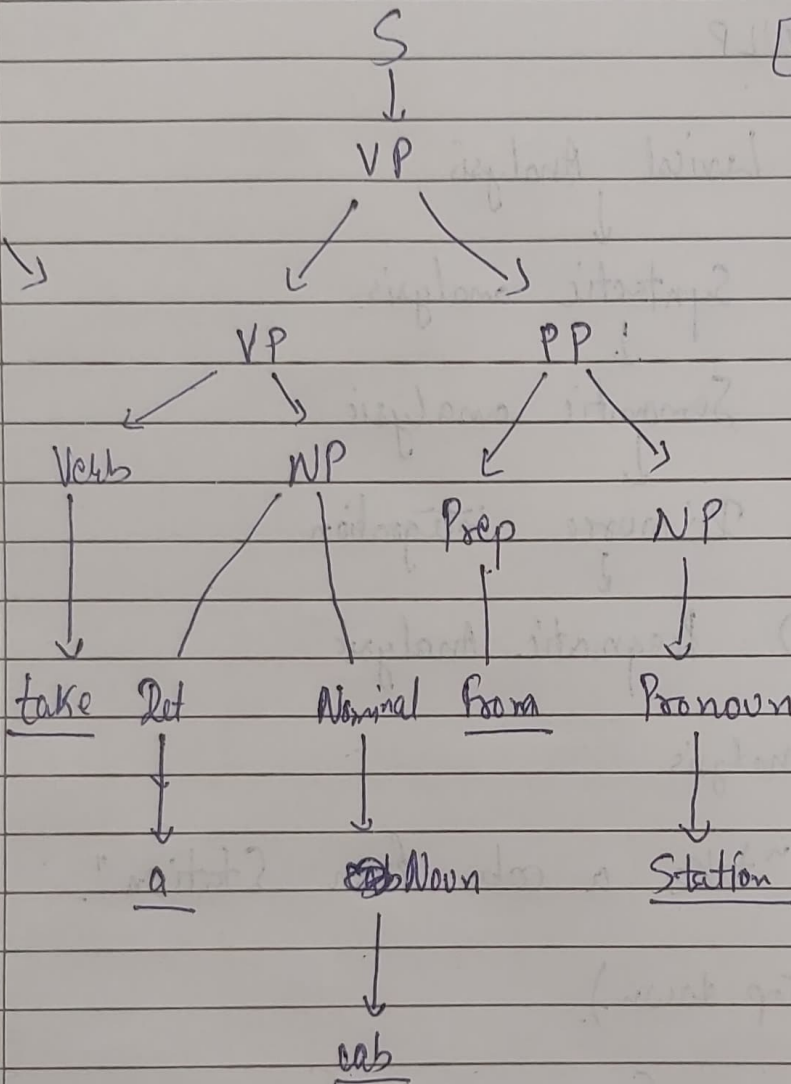 S
VP
VP PP
Verb NP
Prep NP
take Det Nominal from Pronoun
a Noun Station
cab